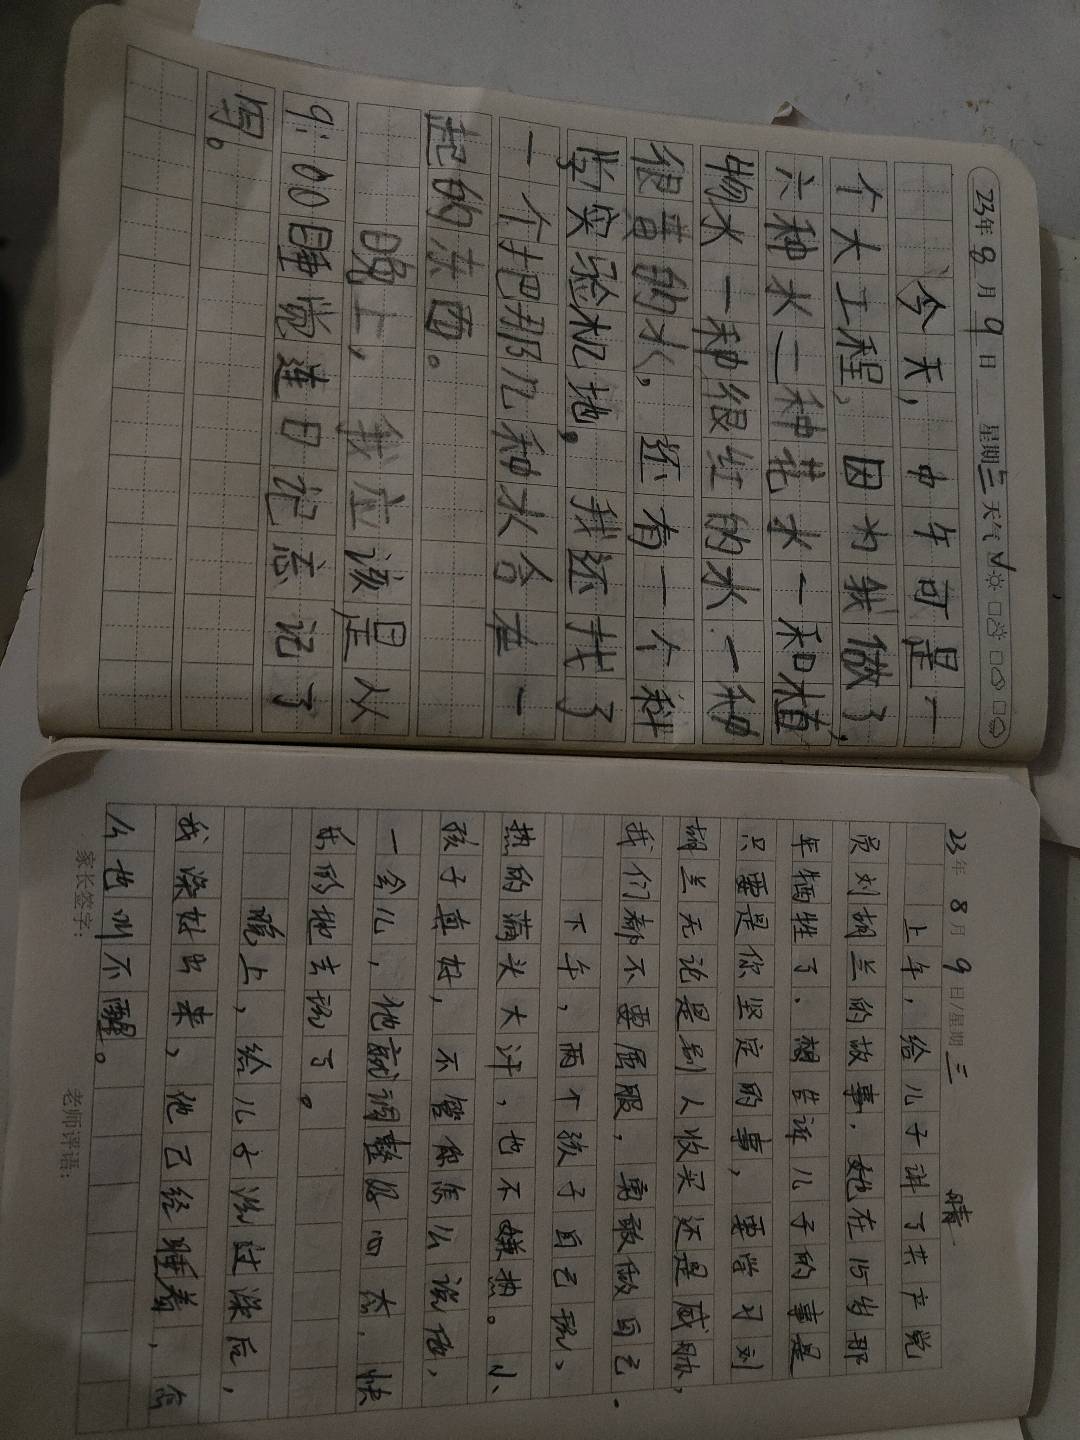 23年8月9日 星期三 天气
今天，中午可是一
个大工程，因为我做了，
六种水一种花水一和植，
物水一种很红的水一种
很黄的水，还有一个科
学实验机地，我还找了
一个把那几种水合在一
起的东西。
晚上，我应该是从
9:00睡觉连日记忘记了
写。
23年8月9日/星期三 晴
上午，给儿子讲了共产党
员刘胡兰的故事．她在15岁那
年牺牲了．想告诉儿子的事是
只要是你坚定的事，要学习刘
胡兰无论是别人收买还是威胁，
我们都不要屈服，勇敢做自己．
下午，两个孩子自己玩、
热的满头大汗，也不嫌热。小、
孩子真好，不管你怎么说他，
一会儿，他就调整好心态．快
乐的地去玩了。
晚上，给儿子洗过澡后，
我澡好出来，他已经睡着，怎
么也叫不醒。
家长签字：
老师评语：